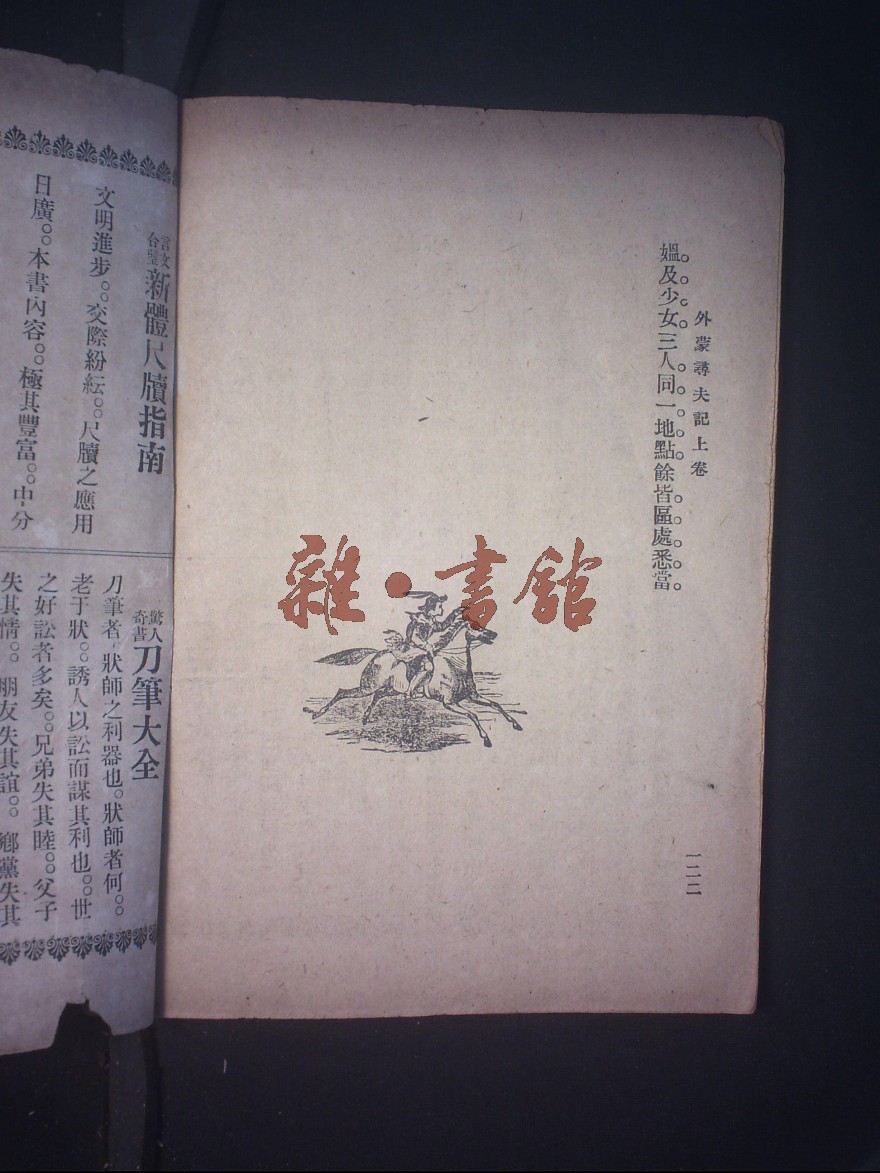 外蒙尋夫記上卷
媼及少女三人同一地點餘皆區處悉當
一二二
雜·書館
言文
合璧
新體尺牘指南
文明進步。。交際紛紜。。尺牘之應用
日廣。。本書內容。。極其豐富。。中分
驚人
奇書
刀筆大全
刀筆者。狀師之利器也。狀師者何。。
老于狀。。誘人以訟而謀其利也。。世
之好訟者多矣。。兄弟失其睦。。父子
失其情。。朋友失其誼。。鄉黨失其